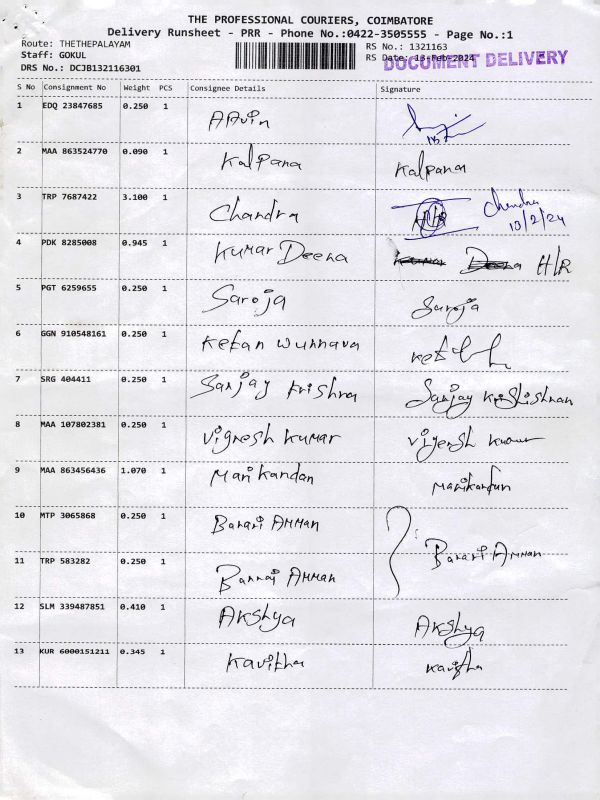 THE PROFESSIONAL COURIERS, COIMBATORE
Delivery Runsheet - PRR - Phone No.:0422-3505555 - Page No.:1
Route: THETHEPALAYAM RS No.: 1321163
Staff: GOKUL RS Date: 13-Feb-2024
DRS No.: DCJB132116301 DOCUMENT DELIVERY
S No Consignment No Weight PCS Consignee Details Signature
1 EDQ 23847685 0.250 1 AArvin
2 MAA 863524770 0.090 1 Kalpana Kalpana
3 TRP 7687422 3.100 1 Chandra H/R Chandra
13/2/24
4 PDK 8285008 0.945 1 Kumar Deena H/R
5 PGT 6259655 0.250 1 Saroja Saroja
6 GGN 910548161 0.250 1 Ketan Wunnava
7 SRG 404411 0.250 1 Sanjay Krishna Sanjay
8 MAA 107802381 0.250 1 Vignesh Kumar Vignesh Kumar
9 MAA 863456436 1.070 1 Manikandan Manikandan
10 MTP 3065868 0.250 1 Banari Amman
Banari Amman
11 TRP 583282 0.250 1 Amman
12 SLM 339487851 0.410 1 Akshya Akshya
13 KUR 6000151211 0.345 1 Kavitha Kavitha